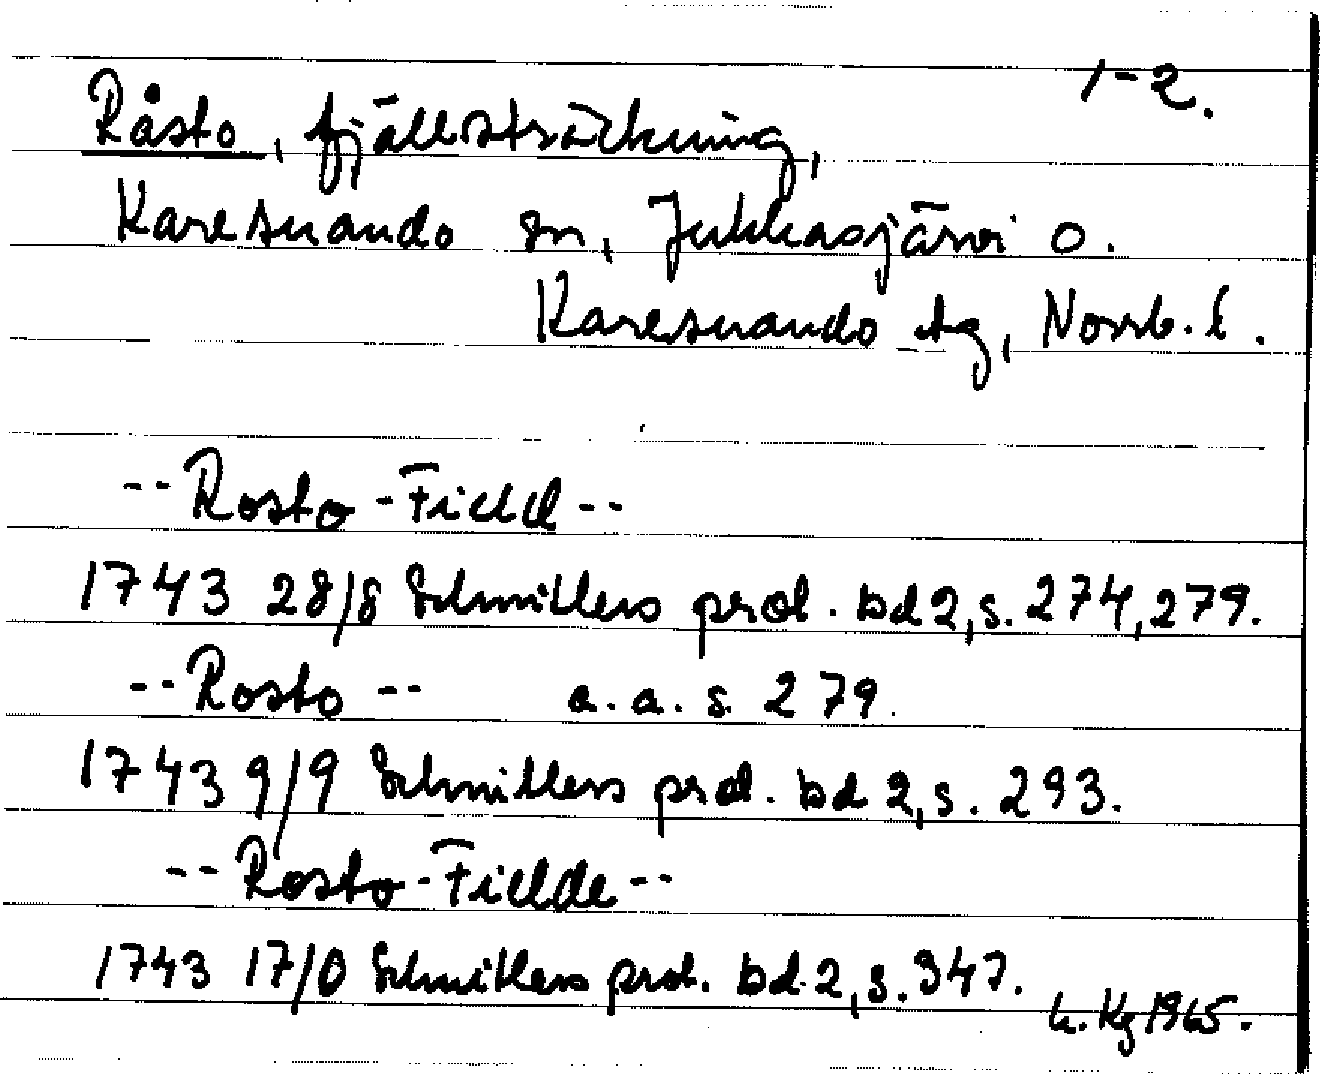 1-2.
Råsto, fjällsträckning,
Karesuando sn, Jukkasjärvi o.
Karesuando tg, Norrb. l.
-- Rosto-Fieldd --
1743 28/8 Schnitlers prot. bd 2, s. 274, 279.
-- Rosto -- a. a. s. 279.
1743 9/9 Schnitlers prot. bd 2, s. 293.
-- Rosto-Fielde --
1743 17/0 Schnitlers prot. bd. 2, s. 347.
Kg 1965.